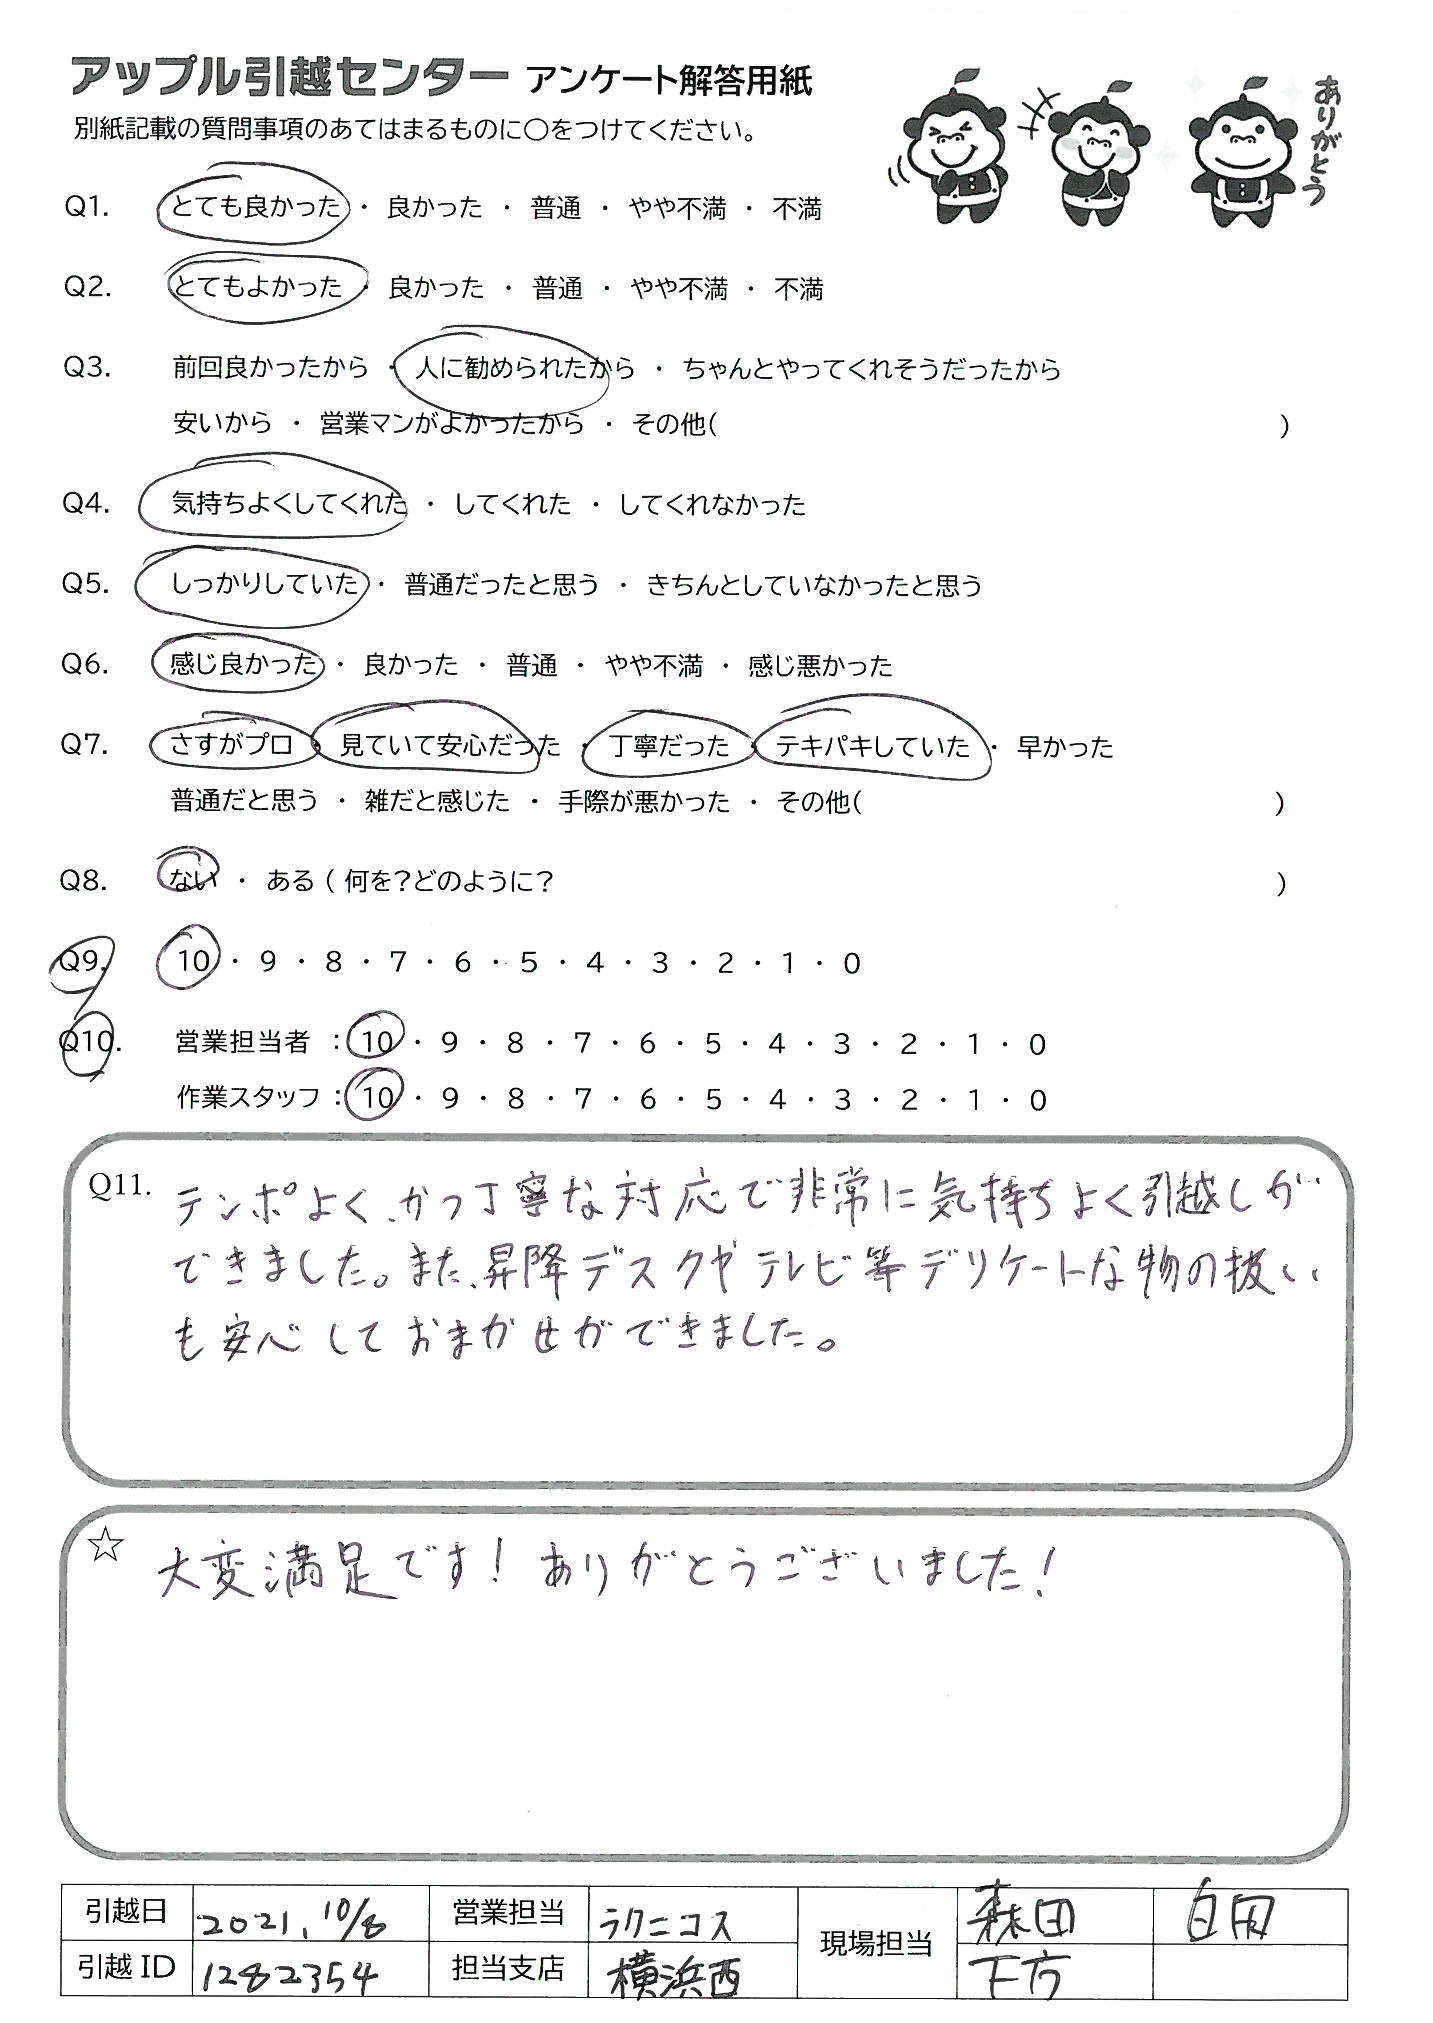 アップル引越センター アンケート解答用紙
別紙記載の質問事項のあてはまるものに○をつけてください。
ありがとう
Q1. とても良かった ・ 良かった ・ 普通 ・ やや不満 ・ 不満
Q2. とてもよかった ・ 良かった ・ 普通 ・ やや不満 ・ 不満
Q3. 前回良かったから ・ 人に勧められたから ・ ちゃんとやってくれそうだったから
安いから ・ 営業マンがよかったから ・ その他( )
Q4. 気持ちよくしてくれた ・ してくれた ・ してくれなかった
Q5. しっかりしていた ・ 普通だったと思う ・ きちんとしていなかったと思う
Q6. 感じ良かった ・ 良かった ・ 普通 ・ やや不満 ・ 感じ悪かった
Q7. さすがプロ ・ 見ていて安心だった ・ 丁寧だった ・ テキパキしていた ・ 早かった
普通だと思う ・ 雑だと感じた ・ 手際が悪かった ・ その他( )
Q8. ない ・ ある ( 何を?どのように? )
Q9. 10 ・ 9 ・ 8 ・ 7 ・ 6 ・ 5 ・ 4 ・ 3 ・ 2 ・ 1 ・ 0
Q10. 営業担当者 : 10 ・ 9 ・ 8 ・ 7 ・ 6 ・ 5 ・ 4 ・ 3 ・ 2 ・ 1 ・ 0
作業スタッフ : 10 ・ 9 ・ 8 ・ 7 ・ 6 ・ 5 ・ 4 ・ 3 ・ 2 ・ 1 ・ 0
Q11. テンポよく、かつ丁寧な対応で非常に気持ちよく引越しが
できました。また、昇降デスクやテレビ等デリケートな物の扱い
も安心しておまかせができました。
☆ 大変満足です! ありがとうございました!
引越日 2021, 10/8 営業担当 ラクニコス 現場担当 森田 白田
引越ID 1282354 担当支店 横浜西 下方